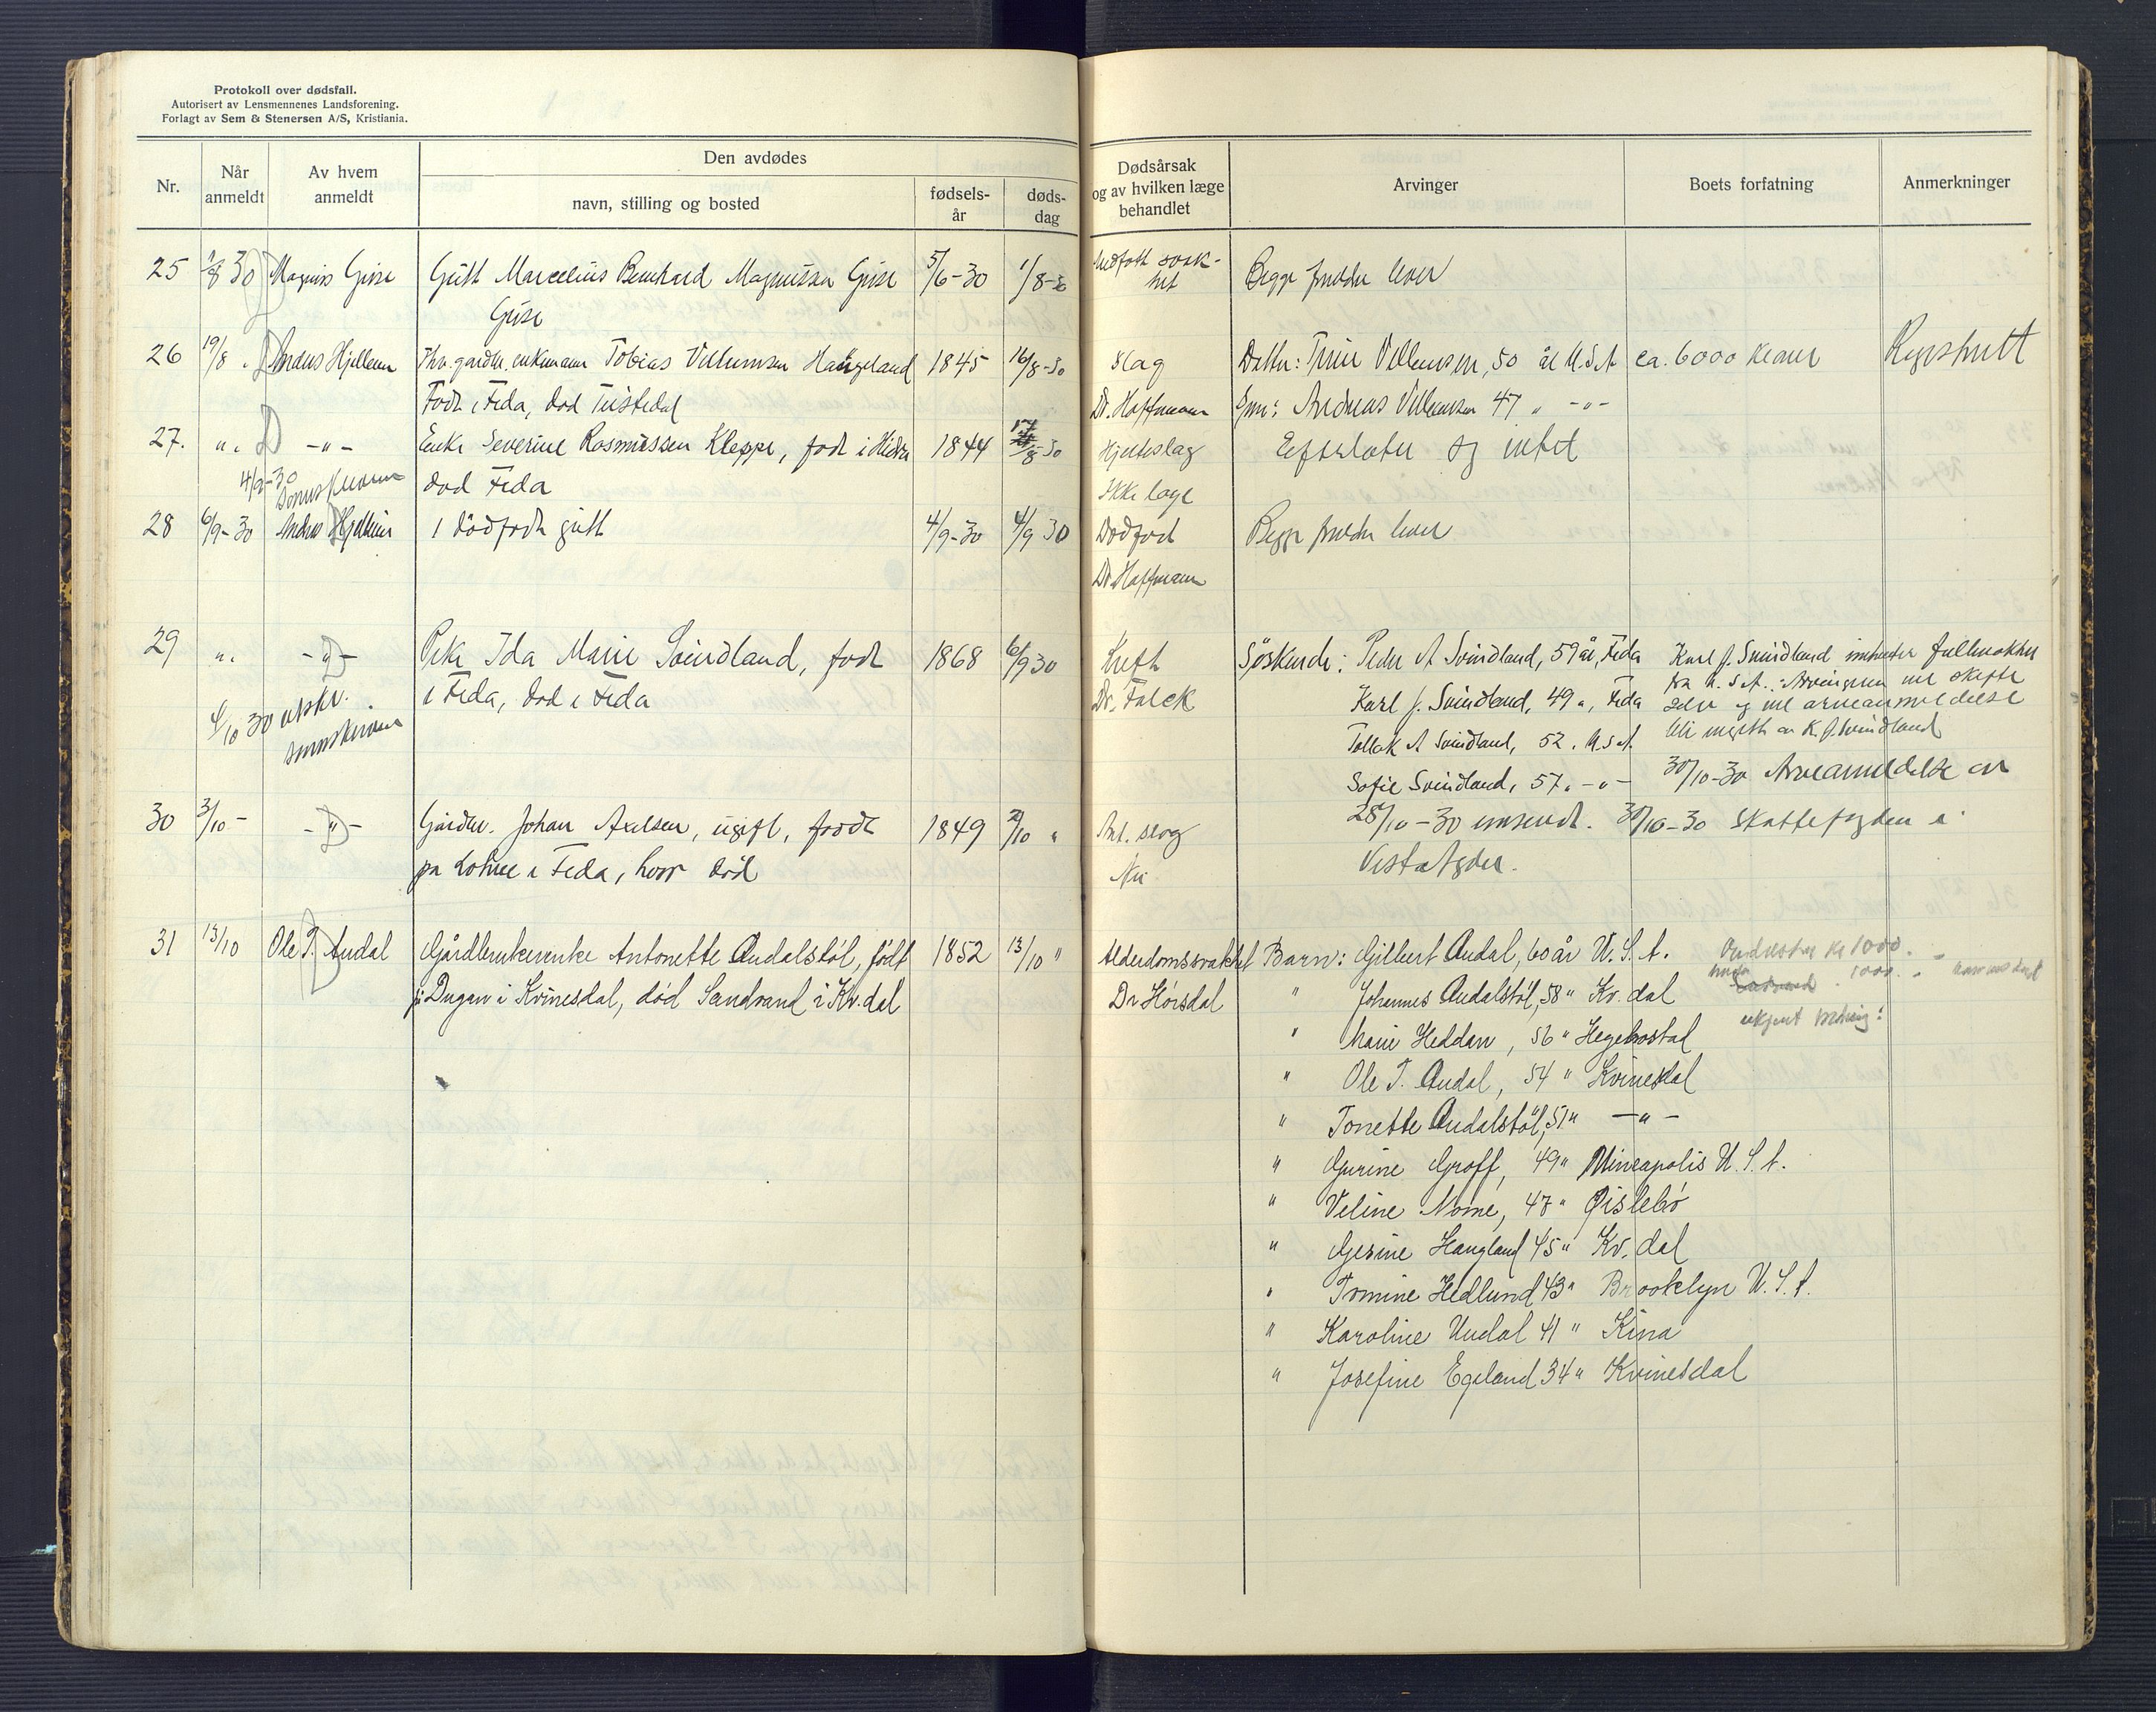 Protokoll over dødsfall.
Autorisert av Lensmennenes Landsforening.
Forlagt av Sem & Stenersen A/S, Kristiania.
Nr.
Når anmeldt
Av hvem anmeldt
Den avdødes
navn, stilling og bosted
fødsels-år
døds-dag
Dødsårsak og av hvilken læge behandlet
Arvinger
Boets forfatning
Anmerkninger
25 1/8 30 Magnus Gjise Gutt Marcelius Bernhard Magnussen Gjise 5/6-30 1/8-30 Medfødt svak- Begge foreldre lever
het
26 19/8 " Andreas Hjelleim Tobias Villumsen Haugeland 1845 16/8-30 Slag Datter: Trine Villumsen, 50 år U.S.A ca. 6000 kroner
Født i Feda, død Teistedal Dr. Hoffmann Søn: Andreas Villumsen 47 " -"-
27. " " -"- Enke Severine Rasmussen Kleppe, født i Hidra 1844 17/8-30 Hjerteslag Efterlater sig intet
4/9-30
død Feda Ikke læge
28 6/9-30 Andreas Hjelleim 1 dødfødt gutt 4/9-30 4/9 30 Dødfødt Begge foreldre lever
Dr. Hoffmann
29 " " -"- Pike Ida Marie Svindland, født 1868 6/9 30 Kreft Søskende: Peder A Svindland, 59 år, Feda Karl J. Svindland innhenter fullmakter
i Feda, død i Feda Dr. Falck Karl J. Svindland, 49 ", Feda fra U.S.A. Arvingene vil skifte
selv og vil arveanmeldelse
4/10 30 Tollak A Svindland, 52 " U.S.A. bli inngitt av K. J. Svindland
Sofie Svindland, 57 " -"- 30/10-30 Arveanmeldelse
30 3/10 - -"- Gårdbr. Johan Axelsen, ugift, født 1849 2/10 " slag 28/10-30 innsendt. 30/10-30 Skattefogden i
på i Feda, hvor død Vest-Agder.
31 13/10 Ole T. Audal Gårdbrukerenke Antonette Audalstøl, født 1852 13/10 " Alderdomssvakhet Barn: Gilbert Audal, 60 år U.S.A. kr 1000.
på Dugan i Kvinesdal, død Sandvand i Kv.dal Dr Hörsdal " Johannes Audalstøl, 58 " Kv.dal 1000.
" Marie Heddan, 56 " Hegebostad
" Ole T. Audal, 54 " Kvinesdal
" Tonette Audalstøl, 51 " -"-
" Gurine Groff, 49 " Mineapolis U.S.A.
" Veline Nome, 47 " Øislebö
" Gesine Haugland 45 " Kv.dal
" Tomine Hedlund 43 " Brooklyn U.S.A.
" Karoline Audal 41 " Kina
" Josefine Egeland 34 " Kvinesdal